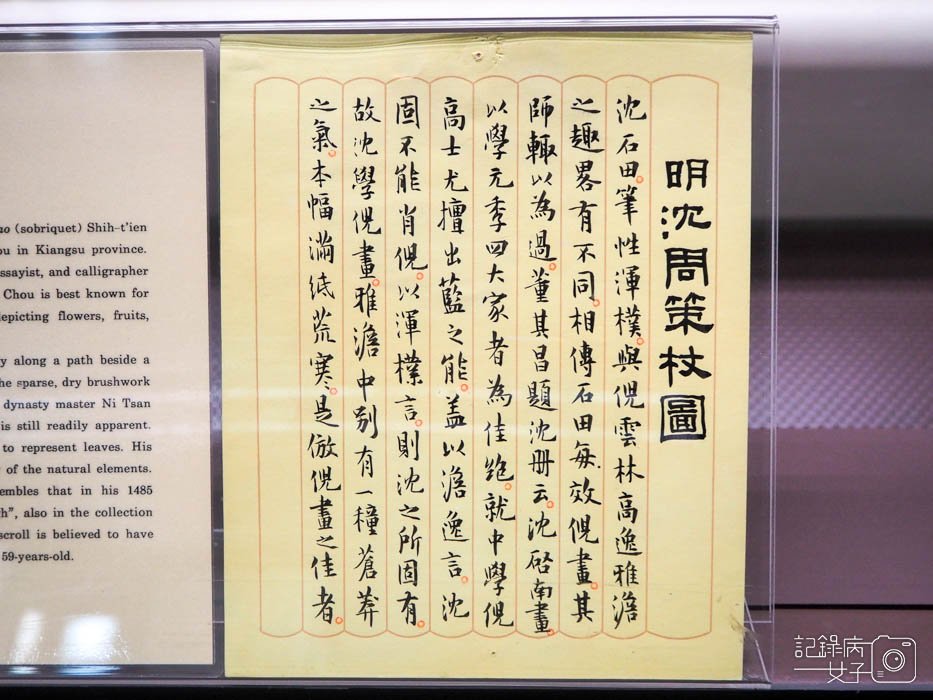 明沈周策杖圖
沈石田。筆性渾樸。與倪雲林高逸雅澹
之趣畧有不同。相傳石田每效倪畫。其
師輒以為過。董其昌題沈冊云。沈啟南畫。
以學元季四大家者為佳。就中學倪
高士尤擅出藍之能。蓋以澹逸言。沈
固不能肖倪。以渾樸言。則沈之所固有。
故沈學倪畫。雅澹中別有一種蒼莽
之氣。本幅滿紙荒寒。是倣倪畫之佳者。
(sobriquet) Shih-t'ien
in Kiangsu province.
and calligrapher
Chou is best known for
depicting flowers, fruits,
along a path beside a
sparse, dry brushwork
dynasty master Ni Tsan
is still readily apparent.
to represent leaves. His
of the natural elements.
that in his 1485
also in the collection
scroll is believed to have
59-years-old.
記錄病
女子